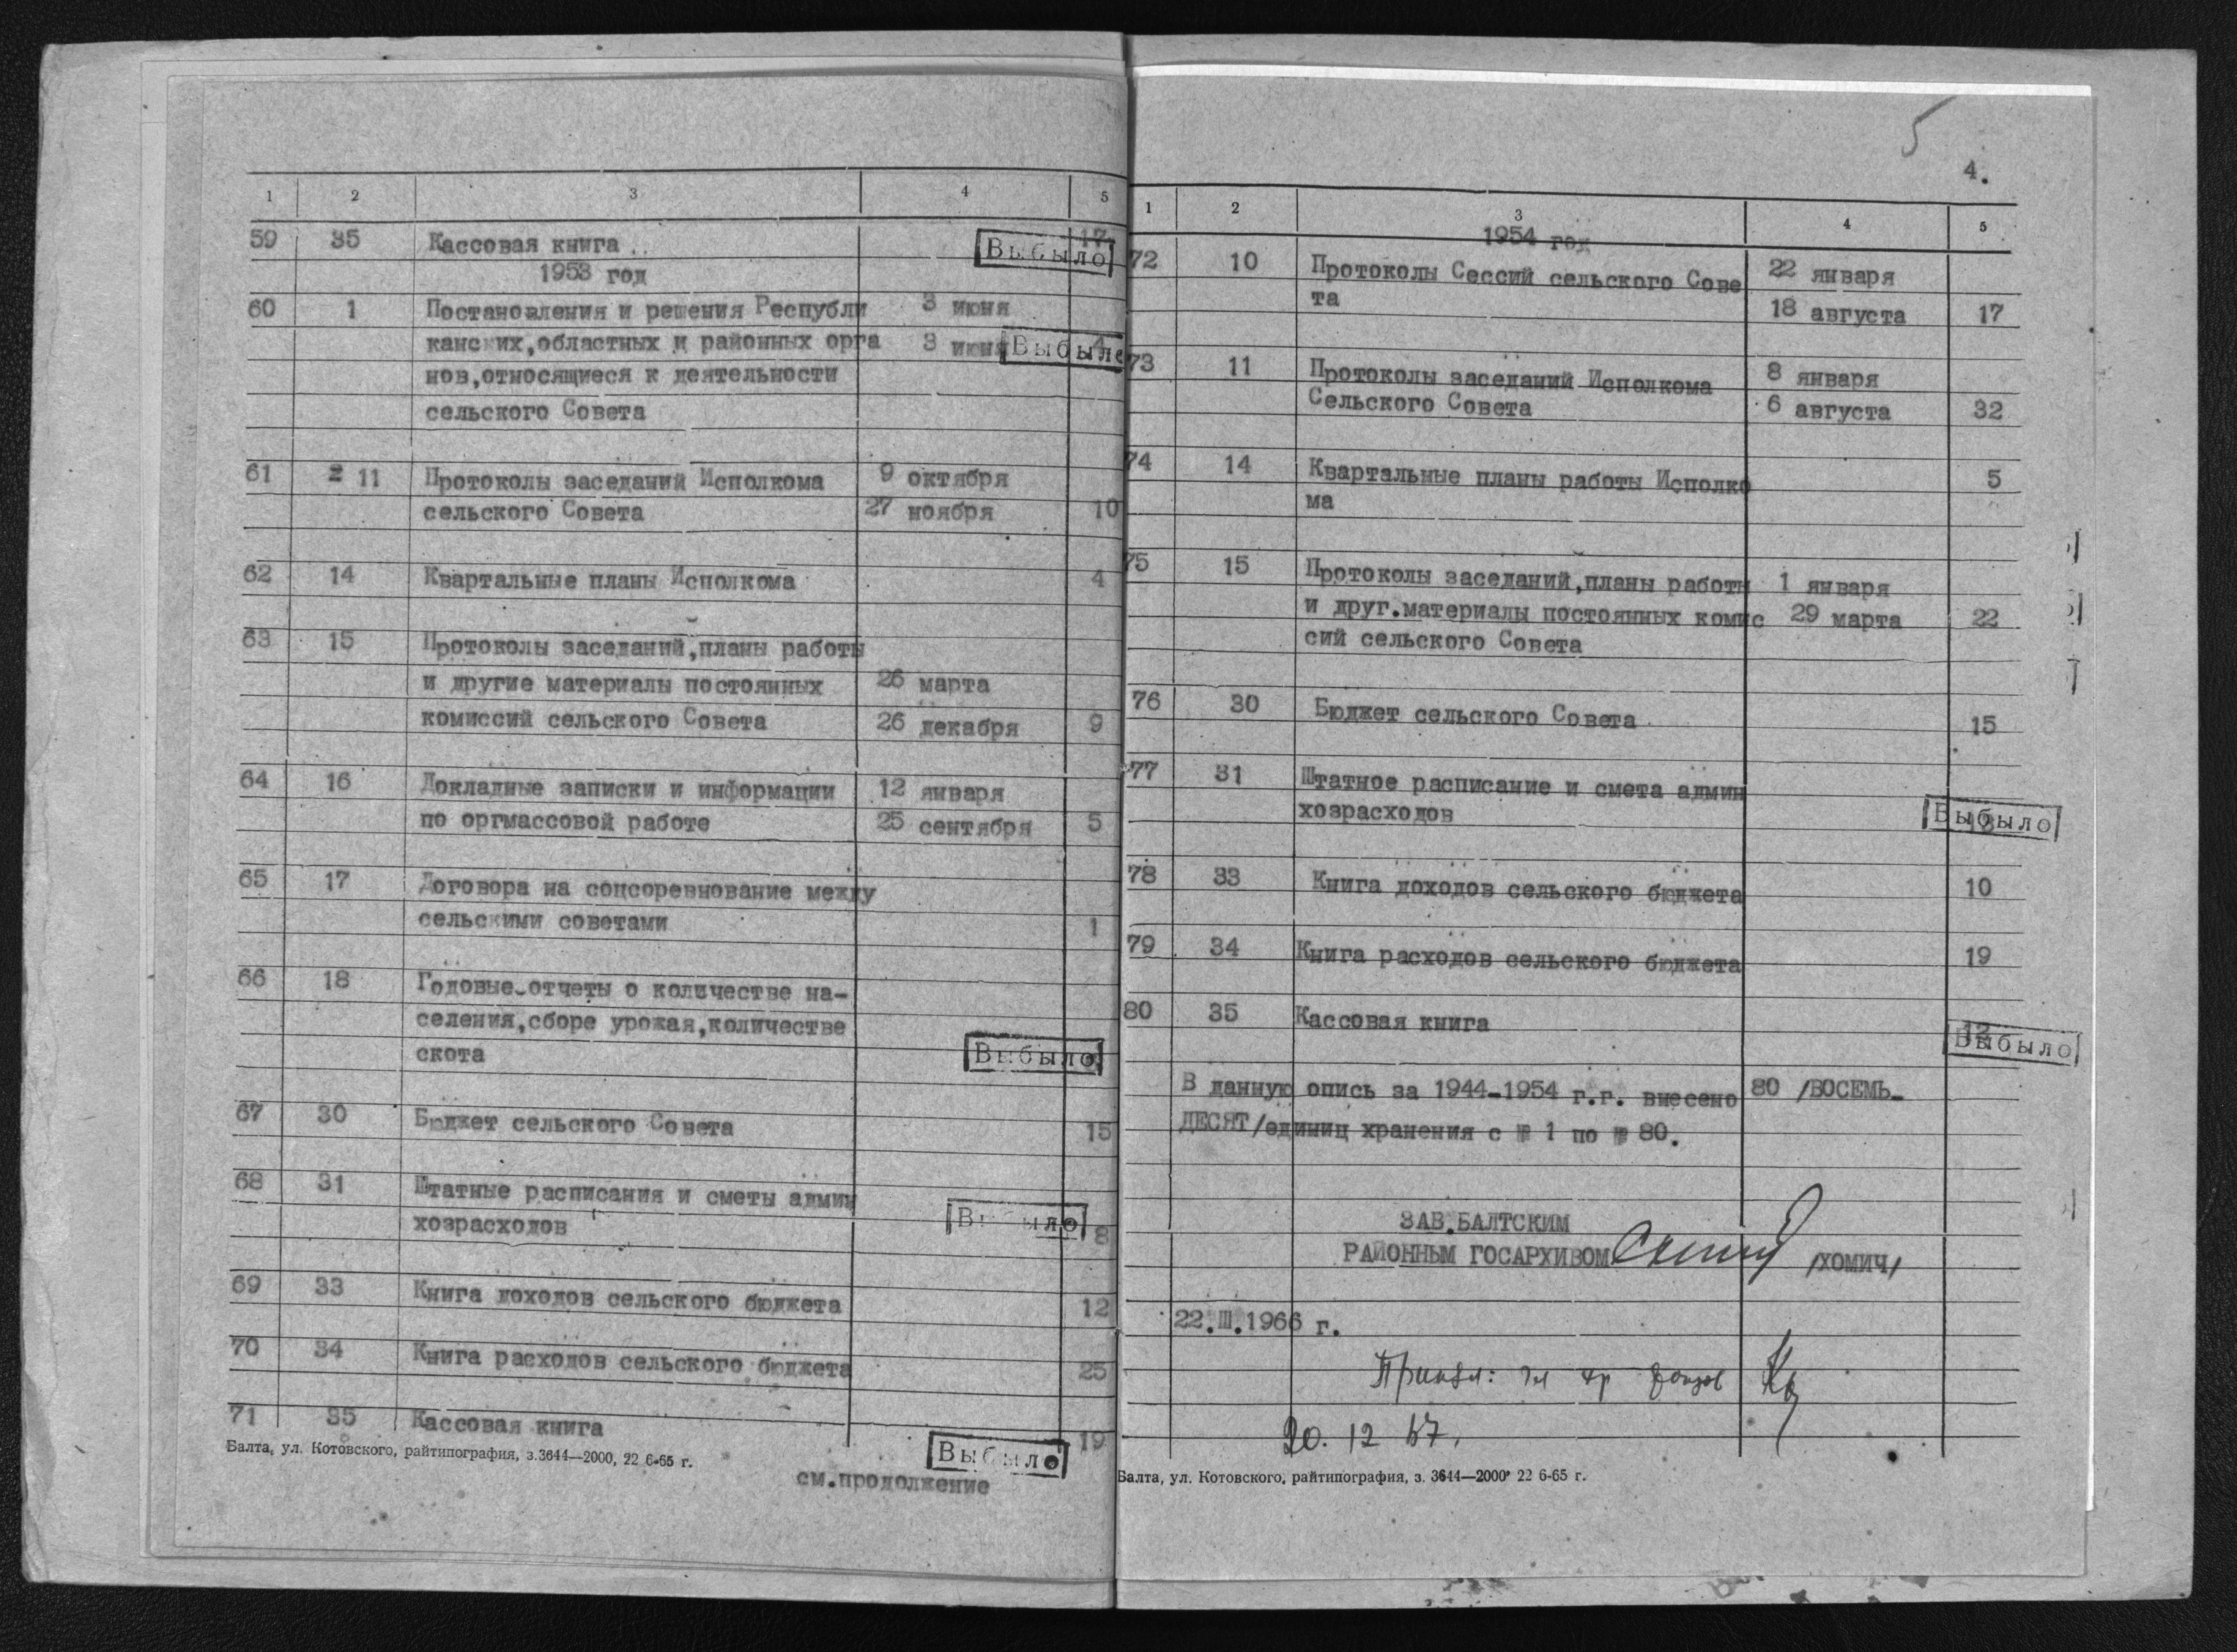 1 2 3 4 5
59 35 Кассовая книга .. 17
Выбыло
1953 год
60 1 Постановления и решения Республи 3 июня
канских,областных и районных орга 3 июня 4
Выбыло
нов,относящиеся к деятельности
сельского Совета
61 11 Протоколы заседаний Исполкома 9 октября
сельского Совета 27 ноября 10
62 14 Квартальные планы Исполкома 4
63 15 Протоколы заседаний,планы работы
и другие материалы постоянных 26 марта
комиссий сельского Совета 26 декабря 9
64 16 Докладные записки и информации 12 января
по оргмассовой работе 25 сентября 5
65 17 Договора на соцсоревнование между
сельскими советами 1
66 18 Годовые отчеты о количестве на-
селения,сборе урожая,количестве
скота
Выбыло
67 30 Бюджет сельского Совета 15
68 31 Штатные расписания и сметы админ
хозрасходов 8
Выбыло
69 33 Книга доходов сельского бюджета 12
70 34 Книга расходов сельского бюджета 25
71 35 Кассовая книга 19
Выбыло
Балта, ул. Котовского, райтипография, з.3644—2000, 22 6-65 г.
см.продолжение
5
4.
1 2 3 4 5
1954 год
72 10 Протоколы Сессий сельского Сове 22 января
та 18 августа 17
73 11 Протоколы заседаний Исполкома 8 января
Сельского Совета 6 августа 32
74 14 Квартальные планы работы Исполко 5
ма
75 15 Протоколы заседаний,планы работы 1 января
и друг.материалы постоянных комис 29 марта 22
сий сельского Совета
76 30 Бюджет сельского Совета 15
77 31 Штатное расписание и смета админ
хозрасходов
Выбыло
78 33 Книга доходов сельского бюджета 10
79 34 Книга расходов сельского бюджета 19
80 35 Кассовая книга 12
Выбыло
В данную опись за 1944-1954 г.г. внесено 80 /ВОСЕМЬ-
ДЕСЯТ/единиц хранения с № 1 по № 80.
ЗАВ.БАЛТСКИМ
РАЙОННЫМ ГОСАРХИВОМ /ХОМИЧ/
22.Ш.1966 г.
20. 12 67.
Балта, ул. Котовского, райтипография, з. 3644—2000 22 6-65 г.